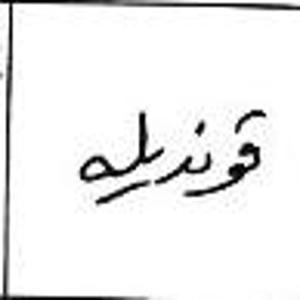 قوندیله